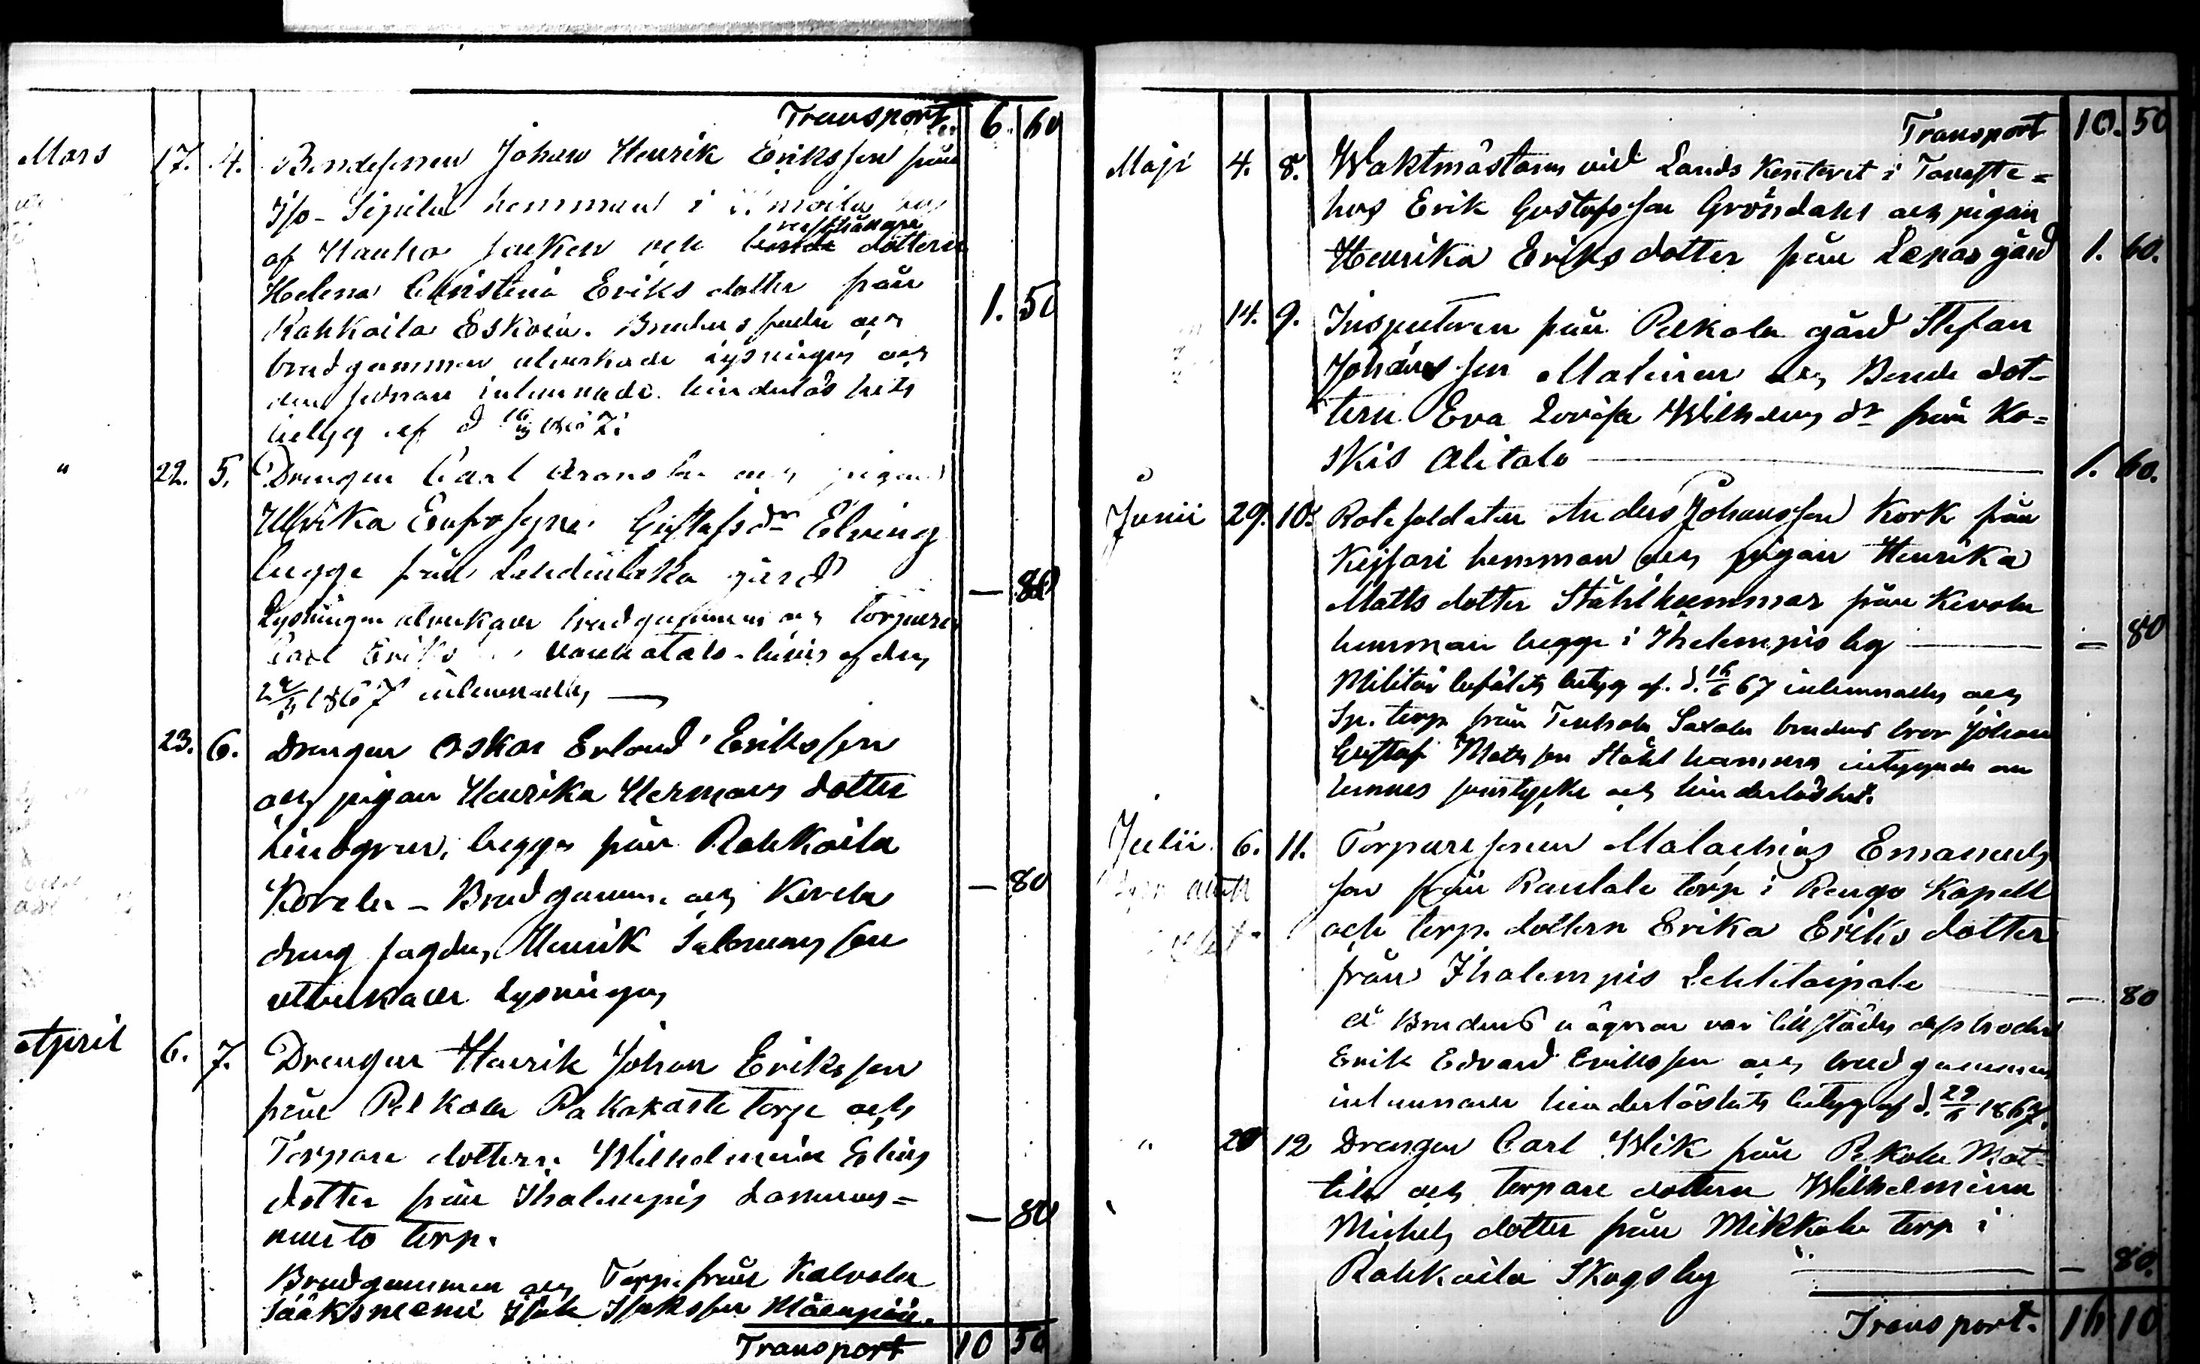 Transport 6. 60
Mars 17. 4. Bondesonen Johan Henrik Eriksson från
Iso-Sipilä hemman i
af Hauho socken och dottern
Helena Christina Eriks dotter från 1. 50
Rahkoila Eskola. Brudens fader och
brudgummen utverkade lysningen och
den sednare inlemnade hinderlöshets
betyg af d
" 22. 5. Drengen Carl och pigan
Ulrika Eufrosyne Gustafsdr Elving
begge från gård — 80
Lysningen utverkade brudgummen och torparen
Carl Eriks bevis af den
1867 inlemnades —
23. 6. Drengen Oskar Erland Eriksson
och pigan Henrika Hermans dotter
Lindgren, begge från Rahkoila
Korela – Brudgummen och Korela — 80
dreng Henrik Salomonsson
utverkade lysningen
April 6. 7. Drengen Henrik Johan Eriksson
från Pelkola Rakokaste torp och
Torpare dottern Wilhelmina Elias
dotter från Ihalempis Lammas= — 80
torp.
Brudgummen och Torp. från Kalvola
Sääksniemi Isak Isaksson
Transport 10 50
Transport 10. 50
Maji 4. 8. Waktmästaren vid Lands Kontoret i Tavaste=
hus Erik Gustafsson Gröndahl och pigan
Henrika Eriksdotter från Lepas gård 1. 60.
14. 9. Inspectoren från Pelkola gård Stefan
Johansson Malinen och Bonde dot=
tern Eva Lovisa Wilhelms dr från Ko=
skis Alitalo — 1. 60.
Junii 29. 10. Rotesoldaten Anders Johansson Kork från
Keisari hemman och pigan Henrika
Matts dotter Stålhammar från Kevola
hemman begge i Ihalempis by — — 80
Militär befälets betyg af d. 16/6 67 inlemnades och
Sp. torp. från Saxala brudens bror Johan
Gustaf Matsson Stålhammar intygade om
hennes samtycke och hinderlöshet.
Julii 6. 11. Torparesonen Malachias Emanuels
son från Rautala torp i Rengo Kapell
och torp. dottern Erika Eriks dotter
från Ihalempis Lehtitaipale — 80
å Brudens vägnar var tillstädes dess broder
Erik Edvard Eriksson och brudgummen
inlemnade hinderlöshets betyg af d. 29/6 1867.
" 20 12 Drengen Carl Wik från Pelkola Mat=
tila och torpare dottern Wilhelmina
Michels dotter från Mikkola torp i
Rahkoila Skogsby — — 80.
Transport. 16 10